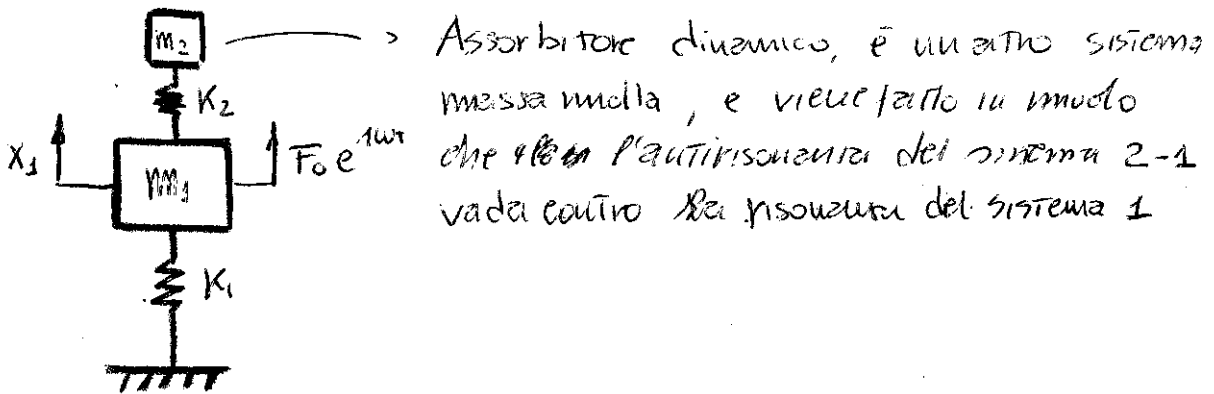 m2
K2
X1
F0 e^iωt
m1
K1
Assorbitore dinamico, è un altro sistema
massa molla, e viene fatto in modo
che l'antirisonanza del sistema 2-1
vada contro la risonanza del sistema 1